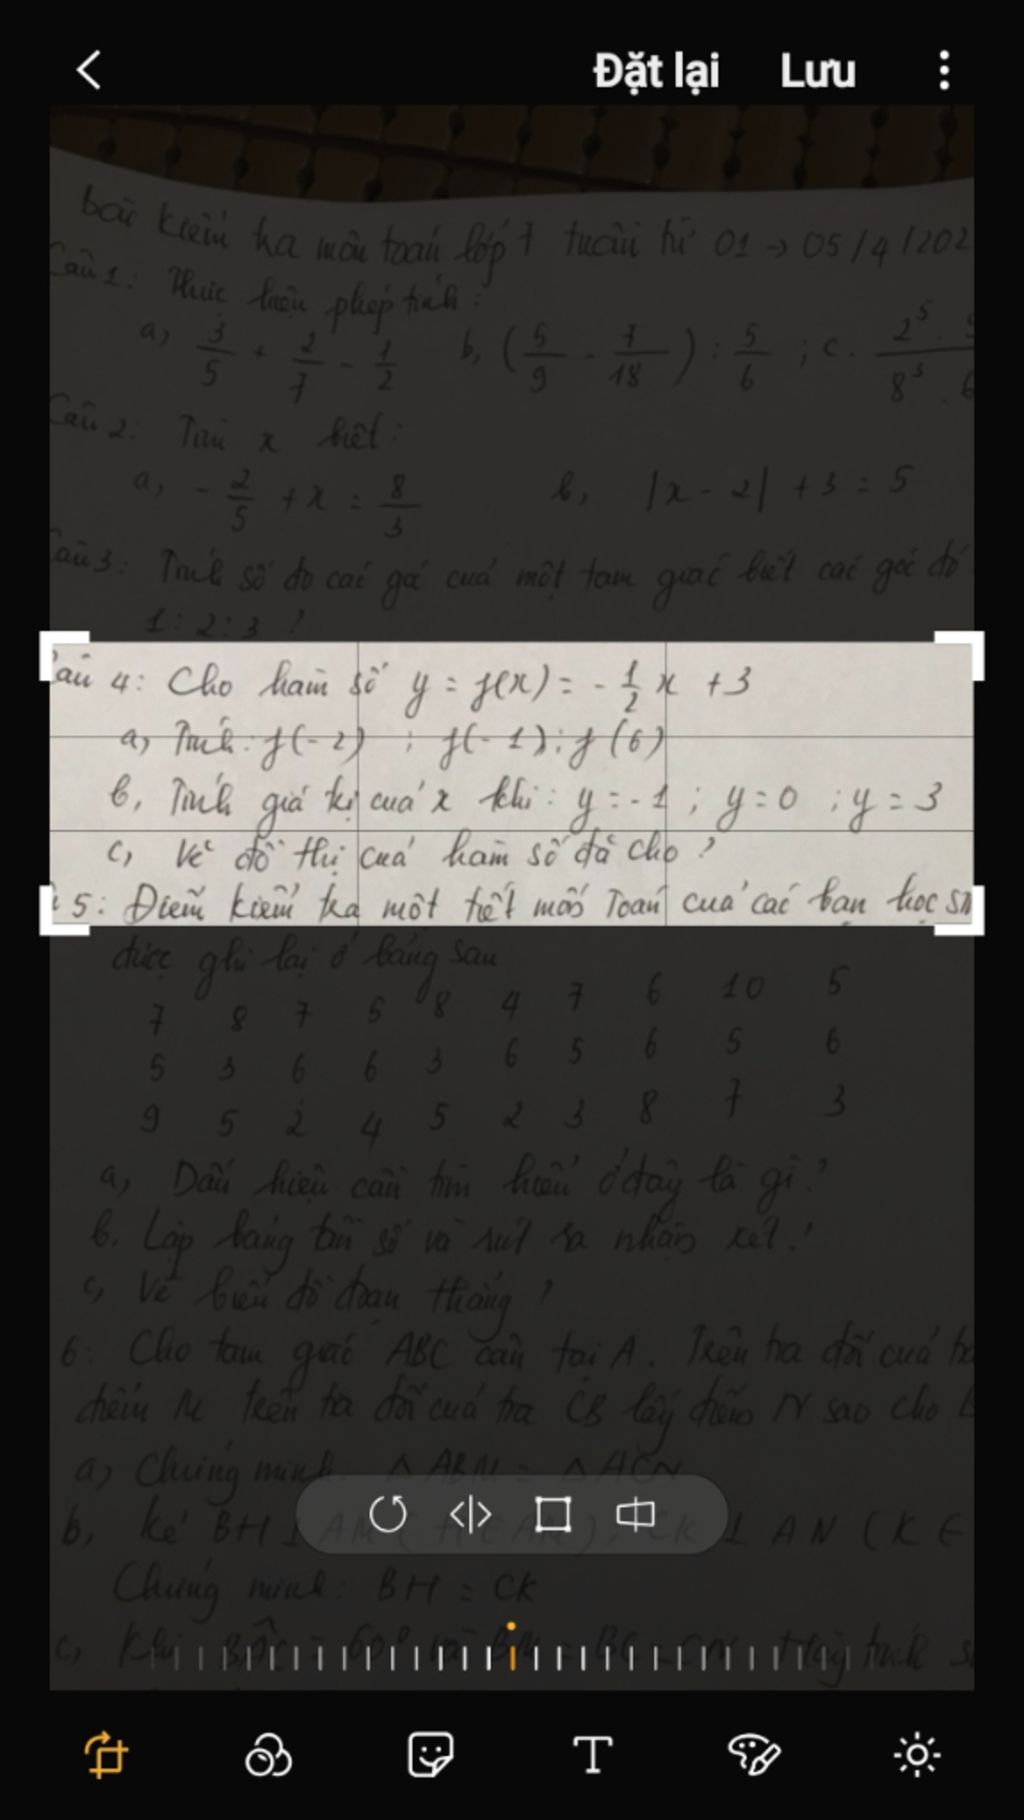 Đặt lại Lưu
bài kiểm tra môn toán lớp 7 tuần từ 01 → 05/4/202
Câu 1: Thực hiện phép tính:
a, 3/5 + 2/7 - 1/2 b, (5/9 - 7/18) : 5/6 ; c.
Câu 2: Tìm x biết:
a, - 2/5 + x = 8/3 b, |x - 2| + 3 = 5
Câu 3: Tính số đo các góc của một tam giác biết các góc đó
1 : 2 : 3 ?
Câu 4: Cho hàm số y = f(x) = - 1/2 x + 3
a, Tính: f(-2) ; f(-1); f(6)
b, Tính giá trị của x khi: y = -1 ; y = 0 ; y = 3
c, Vẽ đồ thị của hàm số đã cho ?
5: Điểm kiểm tra một tiết môn Toán của các bạn học
được ghi lại ở bảng sau
7 8 7 5 8 4 7 6 10 5
5 3 6 6 3 6 5 6 5 6
9 5 2 4 5 2 3 8 7 3
a, Dấu hiệu cần tìm hiểu ở đây là gì ?
b. Lập bảng tần số và rút ra nhận xét.
c, Vẽ biểu đồ đoạn thẳng ?
6: Cho tam giác ABC cân tại A. Trên tia đối của
điểm M trên tia đối của tia CB lấy điểm N sao cho
a, Chứng minh Δ ABM = Δ ACN
b, Kẻ BH ⊥ AM (H ∈ AM), CK ⊥ AN (K ∈
Chứng minh: BH = CK
c, Khi BAC = 60° và BM = BC = CN. Hãy tính
T